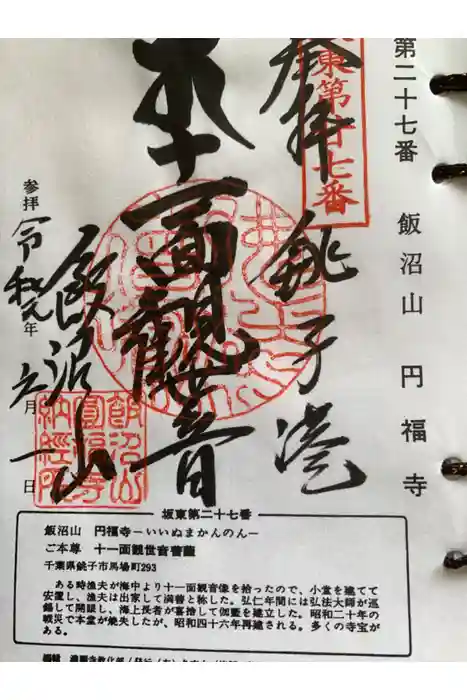 第二十七番 飯沼山 円福寺
東第廿七番
奉拝 銚子港
十一面観世音
飯沼山
参拝 令和元年 六月 一日
飯沼山
圓福寺
納経所
坂東第二十七番
飯沼山 円福寺ーいいぬまかんのんー
ご本尊 十一面観世音菩薩
千葉県銚子市馬場町293
ある時漁夫が海中より十一面観音像を拾ったので、小堂を建てて
安置し、漁夫は出家して満善と称した。弘仁年間には弘法大師が巡
錫して開眼し、海上長者が喜捨して伽藍を建立した。昭和二十年の
戦災で本堂が焼失したが、昭和四十六年再建される。多くの寺宝が
ある。